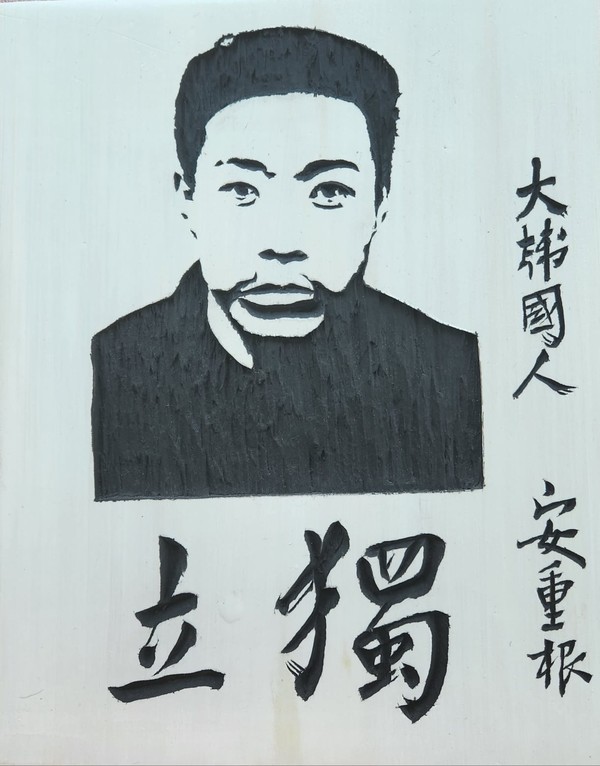 大韓國人 安重根
獨立